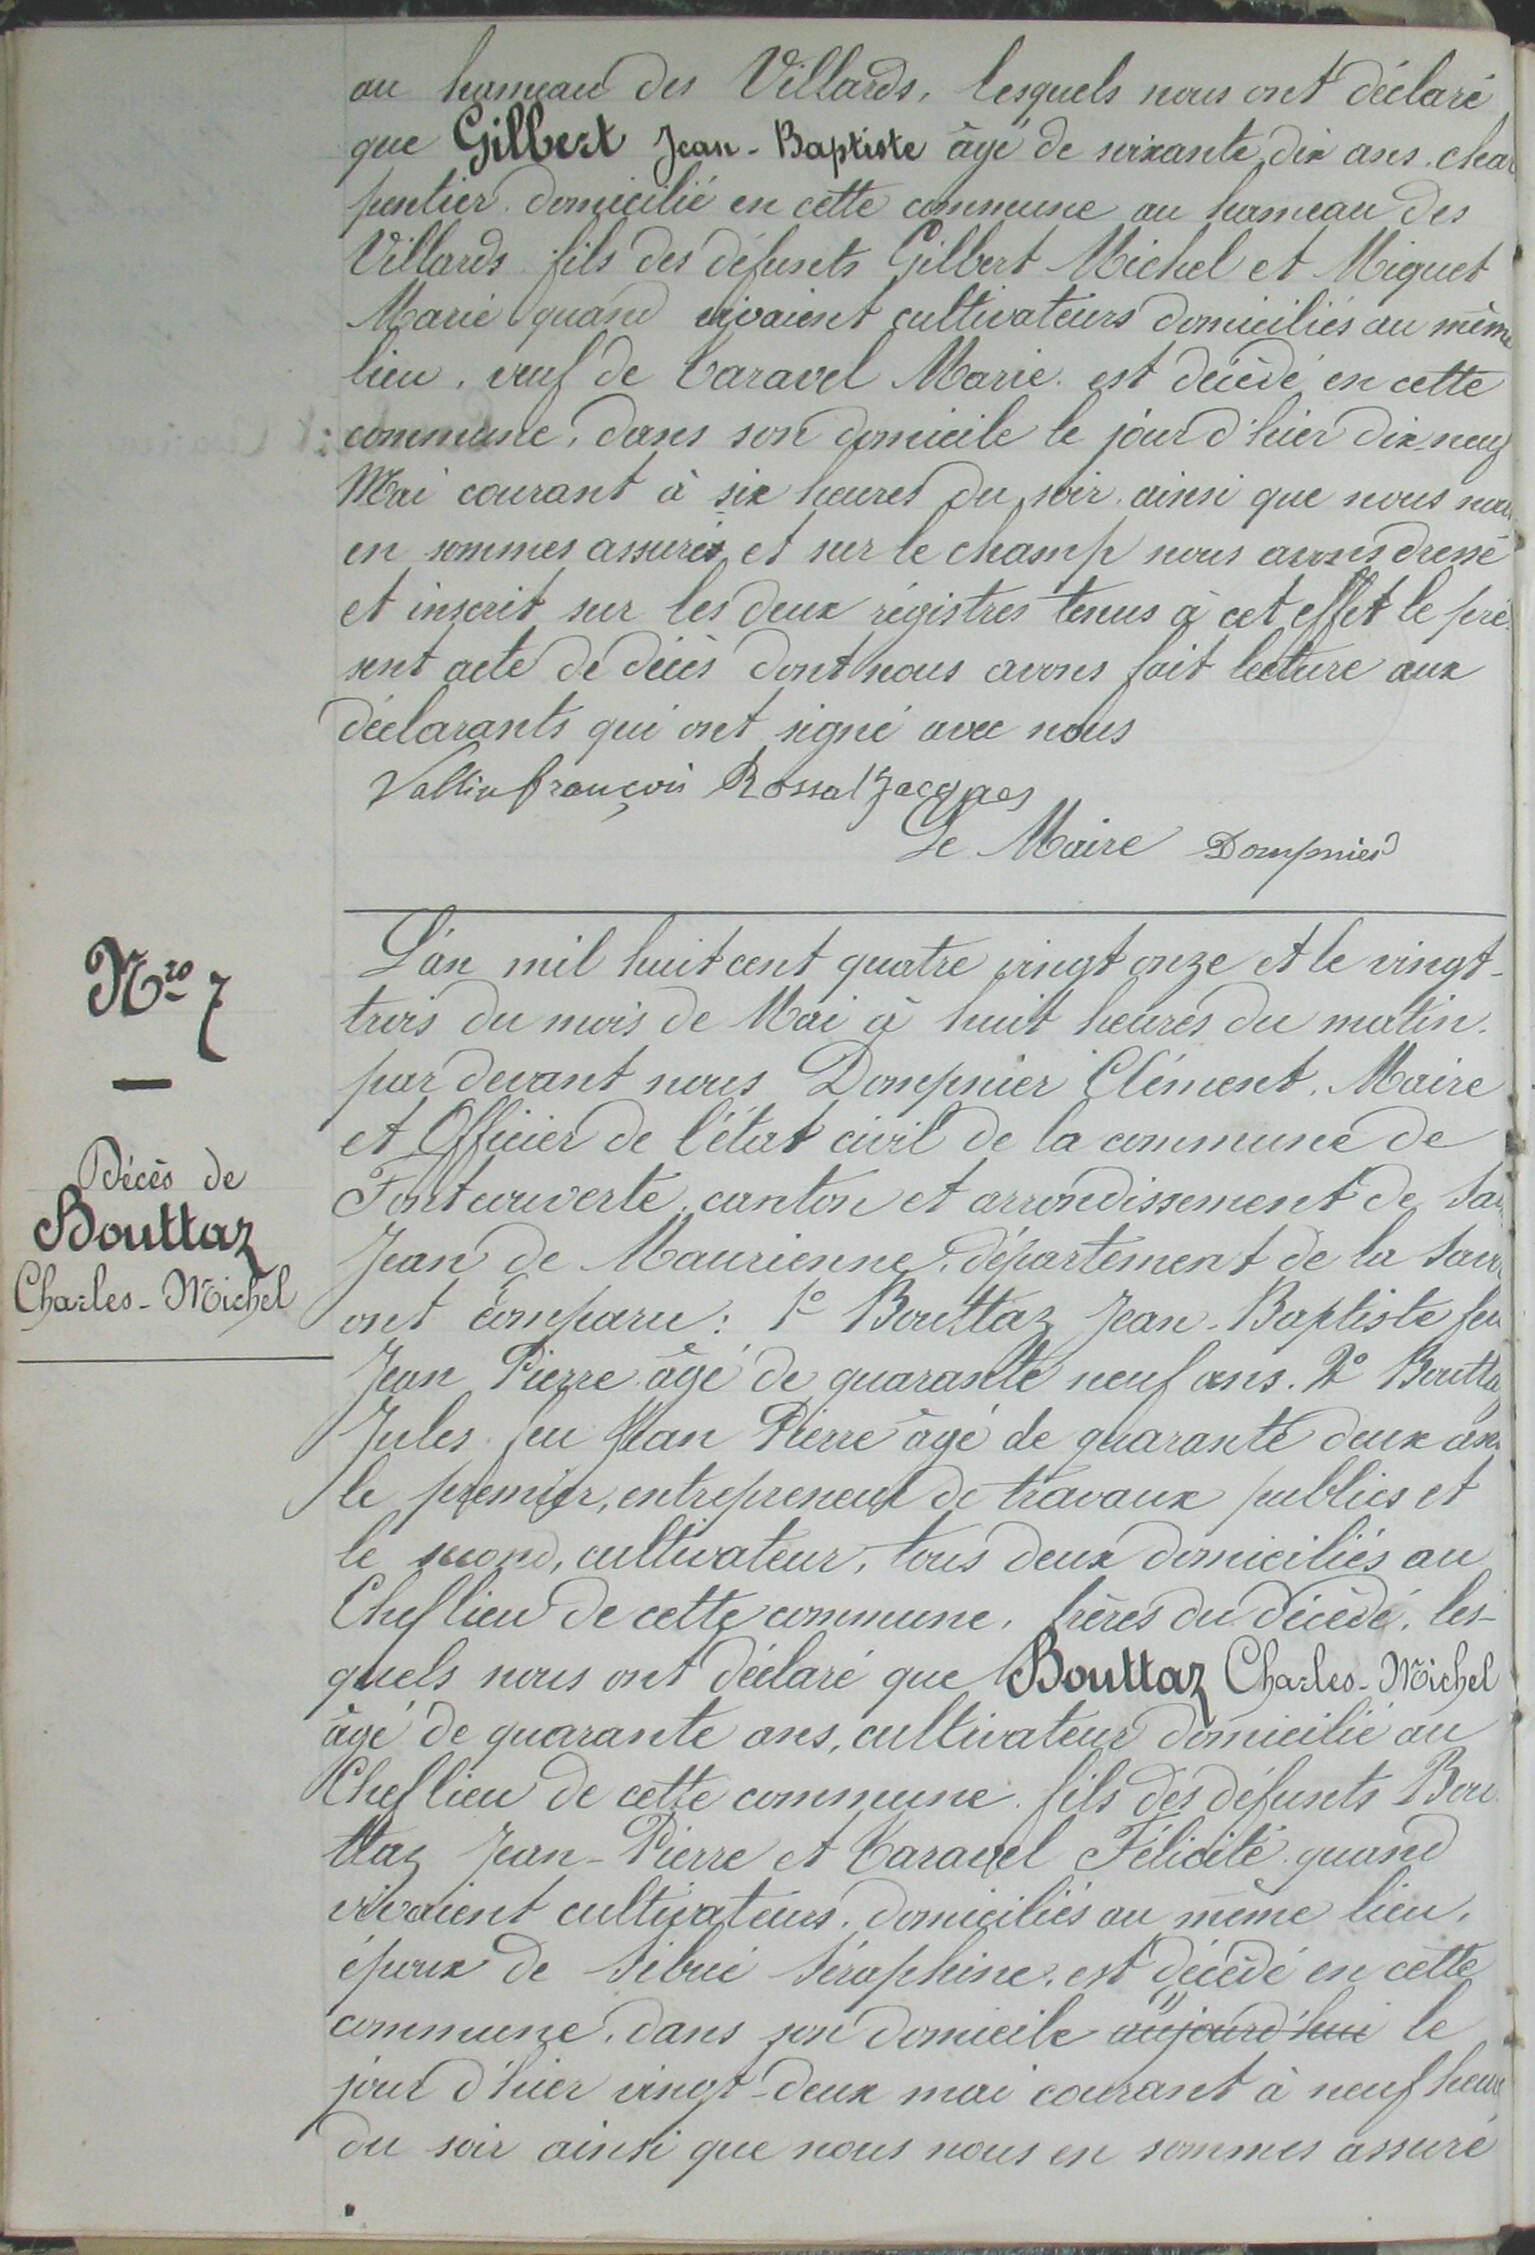 au hameau des Villards, lesquels nous ont déclaré
que Gilbert Jean-Baptiste âgé de soixante dix ans, char
pentier domicilié en cette commune au hameau des
Villards fils des défunts Gilbert Michel et Miquet
Marie quand vivaient cultivateurs domiciliés au même
lieu, veuf de Caravel Marie est décédé en cette
commune, dans son domicile le jour d'hier dix-neuf
Mai courant à six heures du soir ainsi que nous nous
en sommes assurés, et sur le champ nous avons dressé
et inscrit sur les deux régistres tenus à cet effet le pré
sent acte de décès dont nous avons fait lecture aux
déclarants qui ont signé avec nous
Vallin françois Rossat Jacques
Le Maire Dompnier
Nro 7
Décès de
Bouttaz
Charles-Michel
L'an mil huit cent quatre vingt onze et le vingt-
trois du mois de Mai à huit heures du matin.
par devant nous Dompnier Clément, Maire
et Officier de l'état civil de la commune de
Fontcouverte, canton et arrondissement de Sa
Jean de Maurienne, département de la Savo
ont comparu : 1° Bouttaz Jean-Baptiste feu
Jean Pierre âgé de quarante neuf ans. 2° Boutta
Jules feu Jean Pierre âgé de quarante deux ans
le premier, entrepreneur de travaux publics et
le second, cultivateur, tous deux domiciliés au
Cheflieu de cette commune, frères du décédé, les-
quels nous ont déclaré que Bouttaz Charles-Michel
âgé de quarante ans, cultivateur domicilié au
Cheflieu de cette commune, fils des défunts Bou
ttaz Jean-Pierre et Caravel Félicité quand
vivaient cultivateurs, domiciliés au même lieu,
époux de Sibué Séraphine, est décédé en cette
commune, dans son domicile aujourd'hui le
jour d'hier vingt-deux mai courant à neuf heure
du soir ainsi que nous nous en sommes assuré